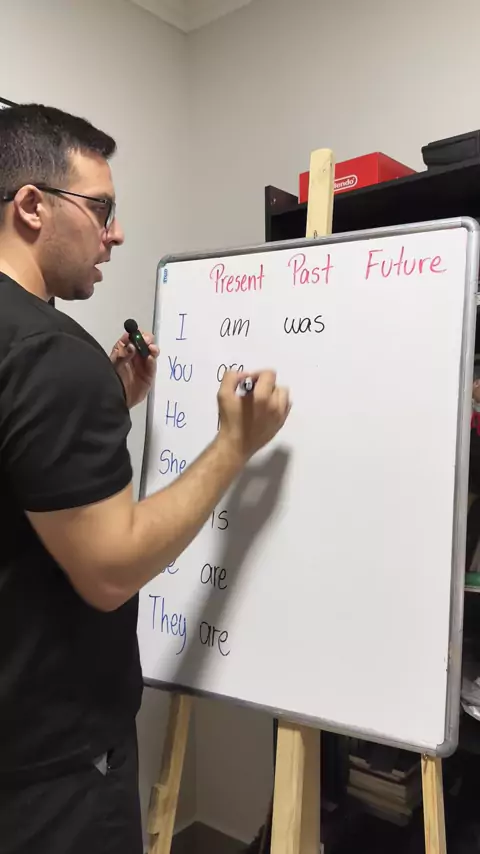 Nintendo
Present Past Future
I am was
You are
He
She
is
are
They are